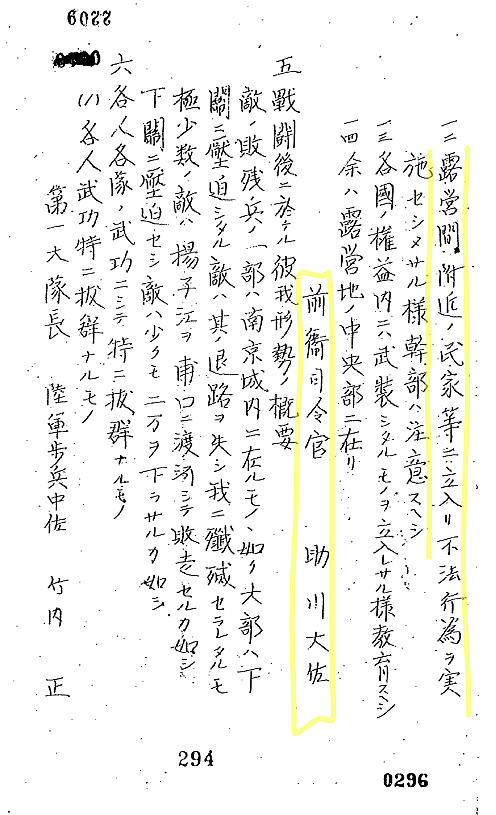 6022
一二露営間附近ノ民家等ニ立入リ不法行為ヲ実
施セシメサル様幹部ハ注意スヘシ
一三各國ノ權益内ニハ武装シタルモノヲ立入レサル様教育スヘシ
一四余ハ露営地ノ中央部ニ在リ
前衛司令官 助川大佐
五戰闘後ニ於ケル彼我形勢ノ概要
敵ノ敗残兵ノ一部ハ南京城内ニ在ルモノヽ如ク大部ハ下
關ニ壓迫シタル敵ハ其ノ退路ヲ失シ我ニ殲滅セラレタルモ
極少数ノ敵ハ揚子江ヲ甫口ニ渡河シテ敗走セルカ如シ
下關ニ壓迫セシ敵ハ少クモ二万ヲ下ラサルカ如シ
六各人各隊ノ武功ニシテ特ニ抜群ナルモノ
(1)各人武功特ニ抜群ナルモノ
第一大隊長 陸軍歩兵中佐 竹内 正
294
0296